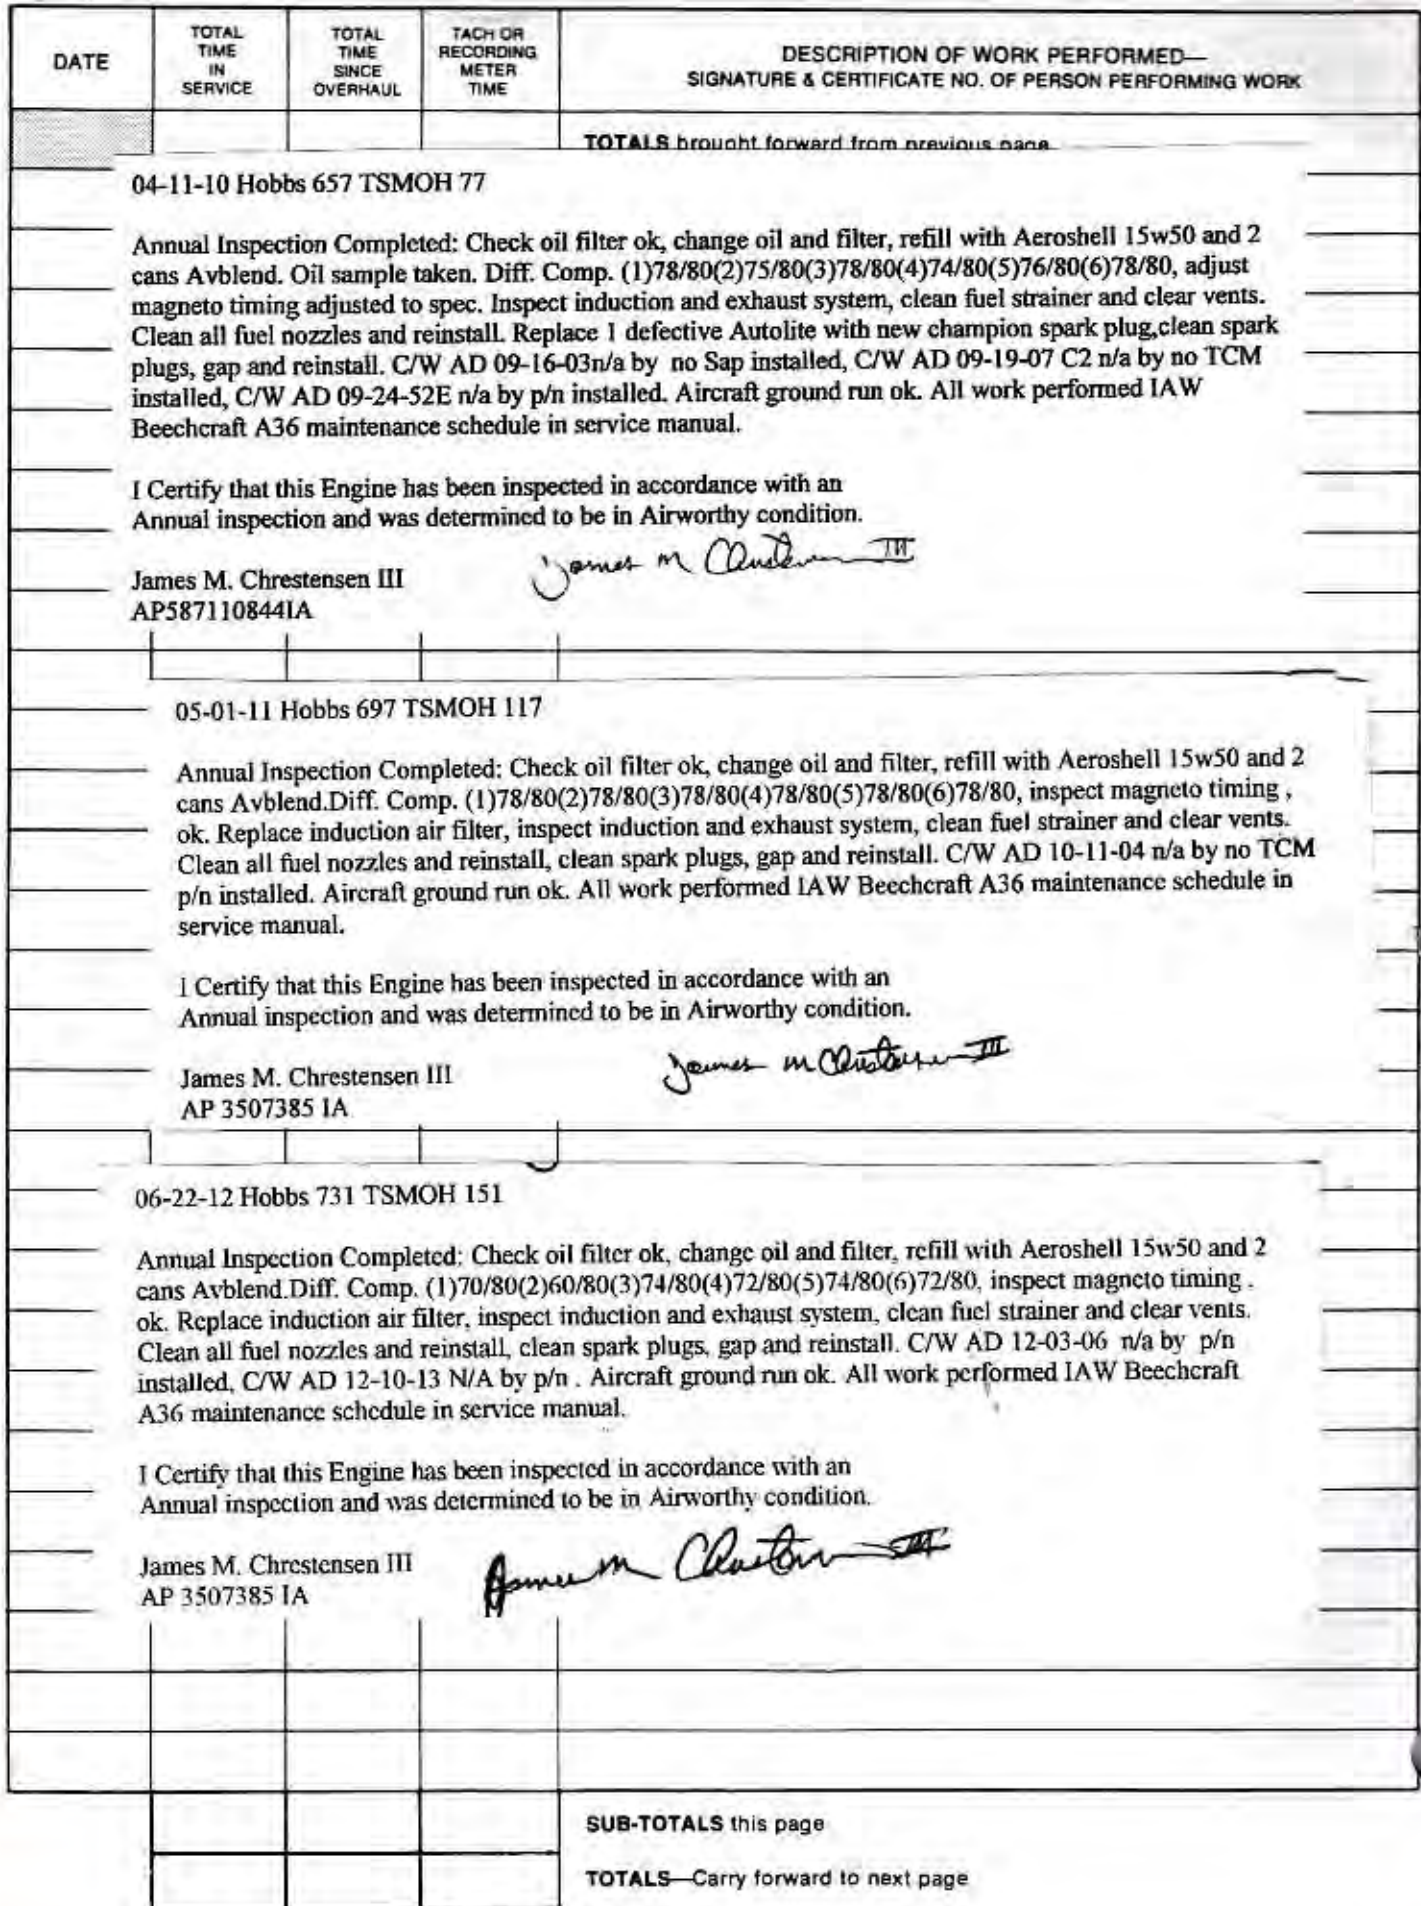 DATE
TOTAL
TIME
IN
SERVICE
TOTAL
TIME
SINCE
OVERHAUL
TACH OR
RECORDING
METER
TIME
DESCRIPTION OF WORK PERFORMED—
SIGNATURE & CERTIFICATE NO. OF PERSON PERFORMING WORK
TOTALS brought forward from previous page
04-11-10 Hobbs 657 TSMOH 77
Annual Inspection Completed: Check oil filter ok, change oil and filter, refill with Aeroshell 15w50 and 2
cans Avblend. Oil sample taken. Diff. Comp. (1)78/80(2)75/80(3)78/80(4)74/80(5)76/80(6)78/80, adjust
magneto timing adjusted to spec. Inspect induction and exhaust system, clean fuel strainer and clear vents.
Clean all fuel nozzles and reinstall. Replace 1 defective Autolite with new champion spark plug,clean spark
plugs, gap and reinstall. C/W AD 09-16-03n/a by no Sap installed, C/W AD 09-19-07 C2 n/a by no TCM
installed, C/W AD 09-24-52E n/a by p/n installed. Aircraft ground run ok. All work performed IAW
Beechcraft A36 maintenance schedule in service manual.
I Certify that this Engine has been inspected in accordance with an
Annual inspection and was determined to be in Airworthy condition.
James M Chrestensen III
James M. Chrestensen III
AP587110844IA
05-01-11 Hobbs 697 TSMOH 117
Annual Inspection Completed: Check oil filter ok, change oil and filter, refill with Aeroshell 15w50 and 2
cans Avblend.Diff. Comp. (1)78/80(2)78/80(3)78/80(4)78/80(5)78/80(6)78/80, inspect magneto timing ,
ok. Replace induction air filter, inspect induction and exhaust system, clean fuel strainer and clear vents.
Clean all fuel nozzles and reinstall, clean spark plugs, gap and reinstall. C/W AD 10-11-04 n/a by no TCM
p/n installed. Aircraft ground run ok. All work performed IAW Beechcraft A36 maintenance schedule in
service manual.
I Certify that this Engine has been inspected in accordance with an
Annual inspection and was determined to be in Airworthy condition.
James M Chrestensen III
James M. Chrestensen III
AP 3507385 IA
06-22-12 Hobbs 731 TSMOH 151
Annual Inspection Completed: Check oil filter ok, change oil and filter, refill with Aeroshell 15w50 and 2
cans Avblend.Diff. Comp. (1)70/80(2)60/80(3)74/80(4)72/80(5)74/80(6)72/80, inspect magneto timing .
ok. Replace induction air filter, inspect induction and exhaust system, clean fuel strainer and clear vents.
Clean all fuel nozzles and reinstall, clean spark plugs, gap and reinstall. C/W AD 12-03-06 n/a by p/n
installed, C/W AD 12-10-13 N/A by p/n . Aircraft ground run ok. All work performed IAW Beechcraft
A36 maintenance schedule in service manual.
I Certify that this Engine has been inspected in accordance with an
Annual inspection and was determined to be in Airworthy condition.
James M Chrestensen III
James M. Chrestensen III
AP 3507385 IA
SUB-TOTALS this page
TOTALS—Carry forward to next page